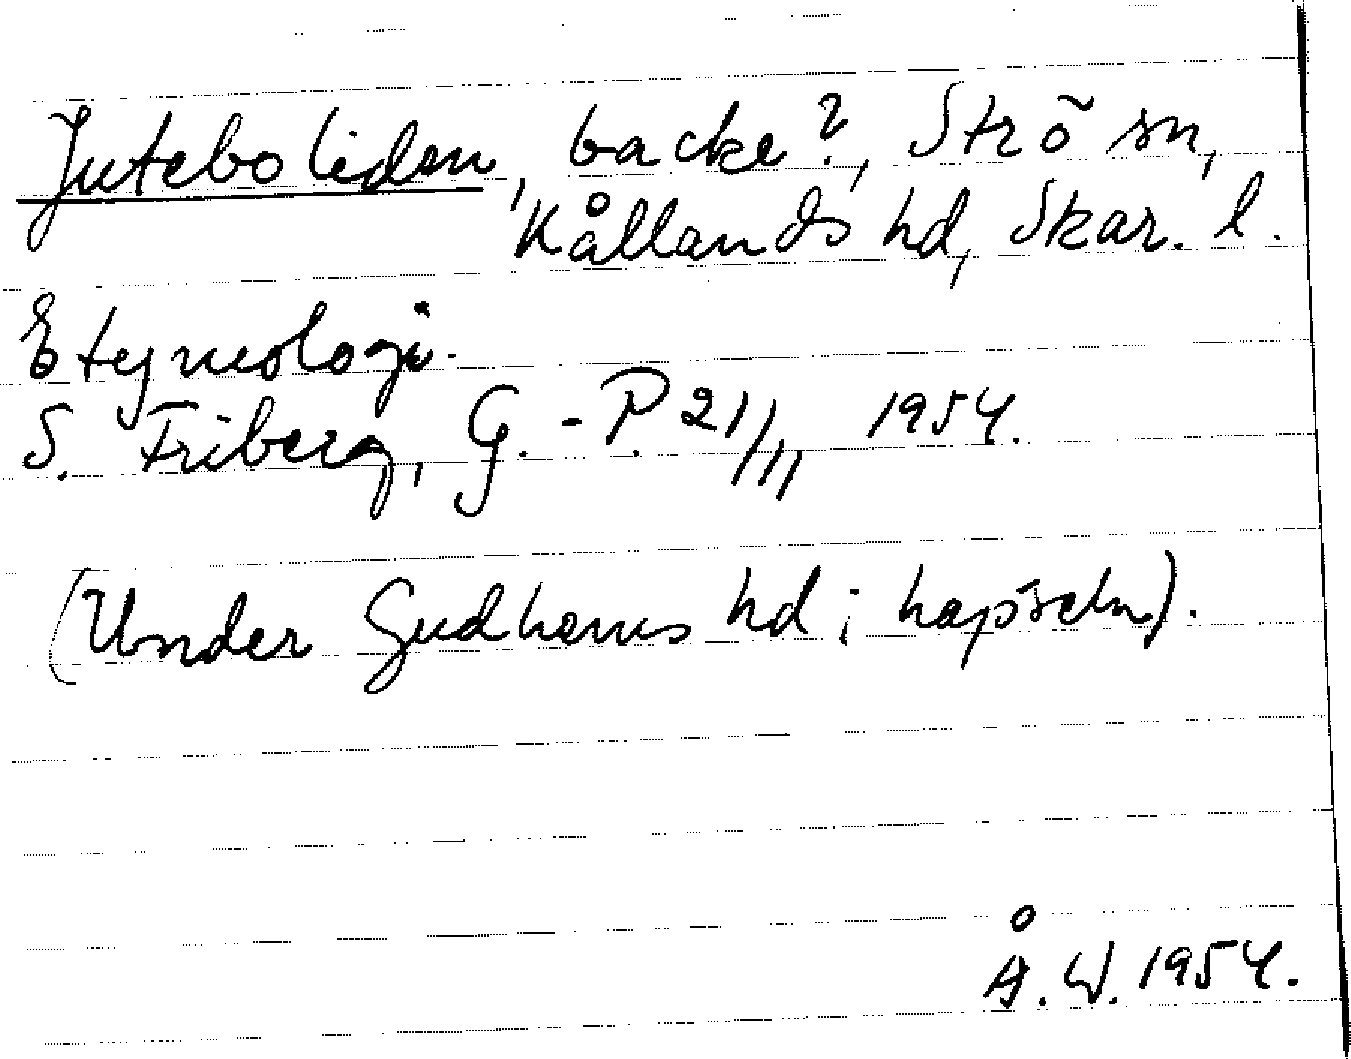 Juteboliden, backe?, Strö sn,
Kållands hd, Skar. l.
Etymologi.
S. Friberg, G.-P. 21/11 1954.
(Under Gudhems hd i kapseln).
Å. W. 1954.